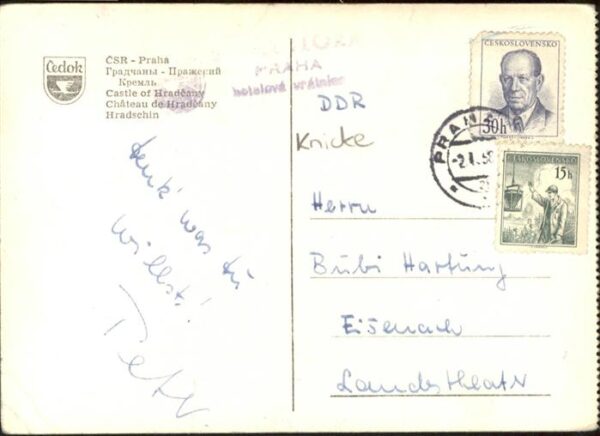 Čedok
ČSR - Praha
Градчаны - Пражский
Кремль
Castle of Hradčany
Château de Hradčany
Hradschin
PRAHA
hotelová vrátnice
DDR
Knicke
ČESKOSLOVENSKO
30h
PRAHA
ČESKOSLOVENSKO
15h
denk' was du
willst!
Peter
Herrn
Bubi Hartung
Eisenach
Landestheater